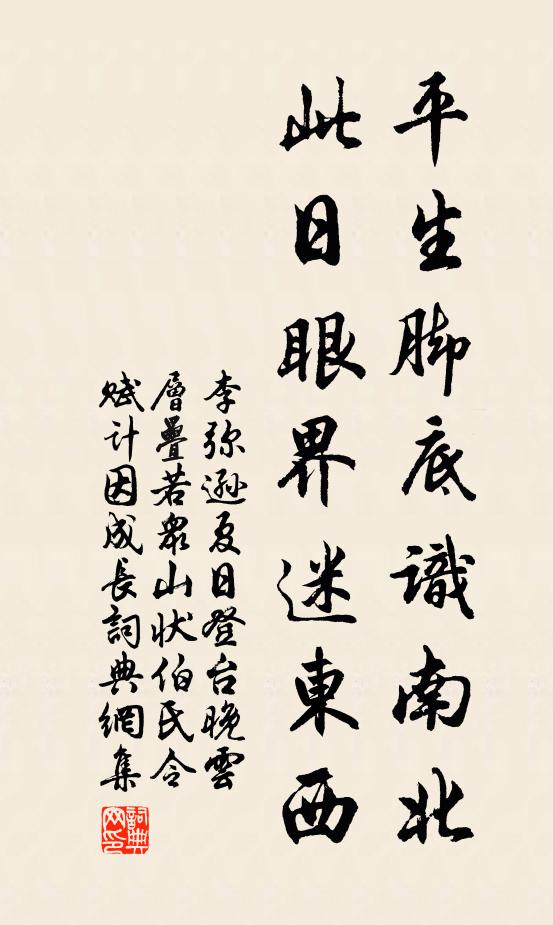 平生脚底識南北
此日眼界迷東西
李弥遜夏日登台晚雲
層疊若衆山狀伯氏令
賦計因成長詞典網集
詞典网印